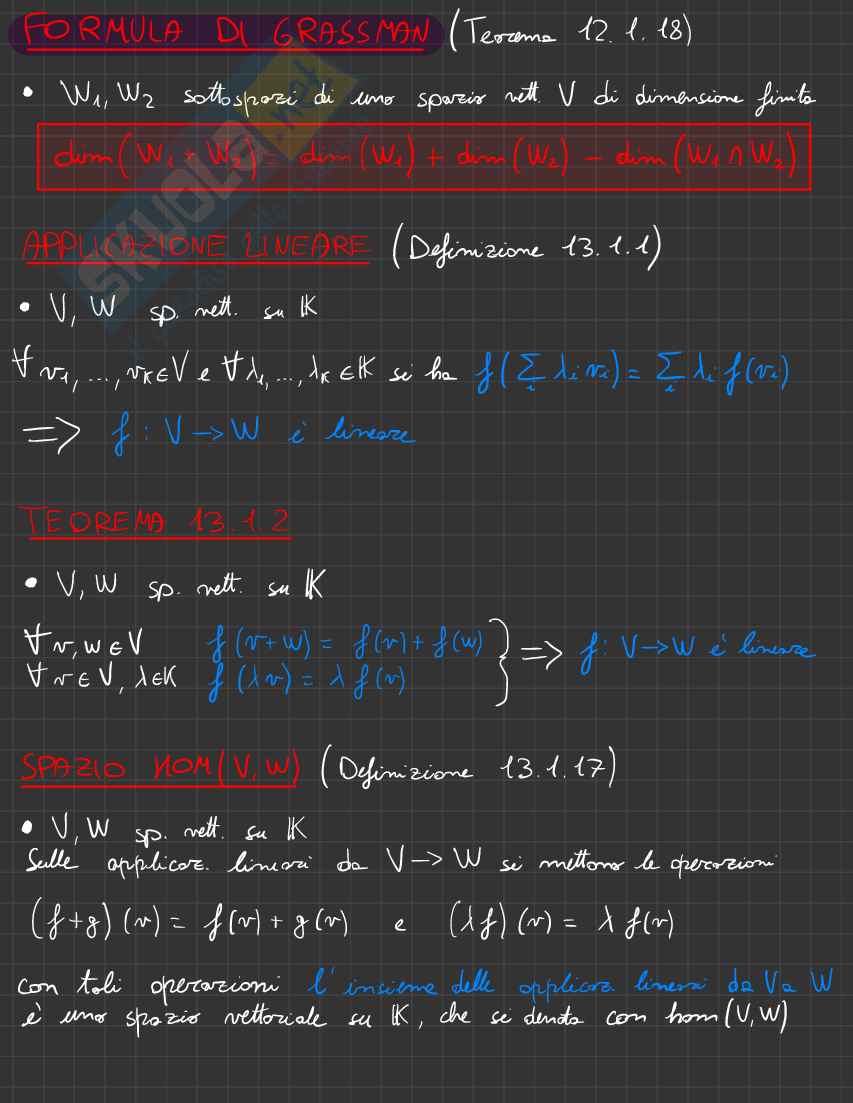 FORMULA DI GRASSMAN (Teorema 12.1.18)
• W₁, W₂ sottospazi di uno spazio vett. V di dimensione finita
dim(W₁ + W₂) = dim(W₁) + dim(W₂) - dim(W₁ ∩ W₂)
SKUOLA.net
APPLICAZIONE LINEARE (Definizione 13.1.1)
• V, W sp. vett. su 𝕂
∀ v₁, ..., vₖ ∈ V e ∀ λ₁, ..., λₖ ∈ 𝕂 si ha f(∑ᵢ λᵢ vᵢ) = ∑ᵢ λᵢ f(vᵢ)
=> f : V → W è lineare
TEOREMA 13.1.2
• V, W sp. vett. su 𝕂
∀ v, w ∈ V f(v+w) = f(v) + f(w)
∀ v ∈ V, λ ∈ K f(λv) = λ f(v)
} => f : V → W è lineare
SPAZIO HOM(V, W) (Definizione 13.1.17)
• V, W sp. vett. su 𝕂
Sulle applicaz. lineari da V → W si mettono le operazioni
(f+g)(v) = f(v) + g(v) e (λf)(v) = λ f(v)
con tali operazioni l'insieme delle applicaz. lineari da V a W
è uno spazio vettoriale su 𝕂, che si denota con hom(V, W)